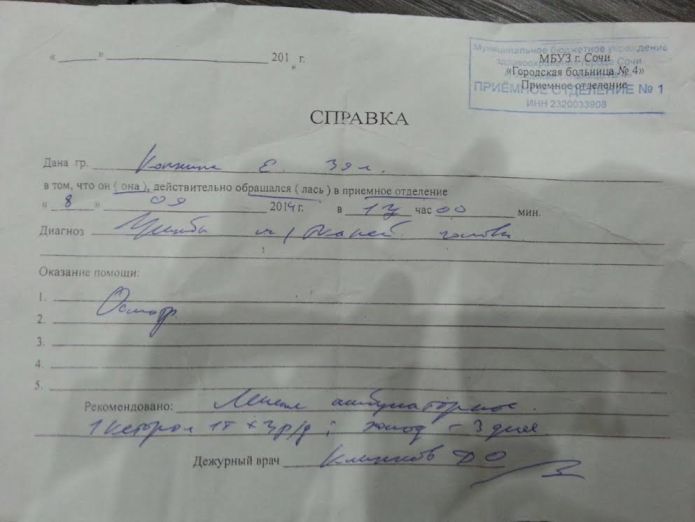 « » 201 г.
Муниципальное бюджетное учреждение
здравоохранения города Сочи
ПРИЁМНОЕ ОТДЕЛЕНИЕ № 1
ИНН 2320033908
МБУЗ г. Сочи
«Городская больница № 4»
Приемное отделение
СПРАВКА
Дана гр. Е. 39 л.
в том, что он ( она ), действительно обращался ( лась ) в приемное отделение
« 8 » 09 2014 г. в час 00 мин.
Диагноз Ушибы м/тканей головы
Оказание помощи:
1. Осмотр
2.
3.
4.
5.
Рекомендовано: амбулаторное.
1 Кеторол 1т х 3 р/д ; холод - 3 дня
Дежурный врач